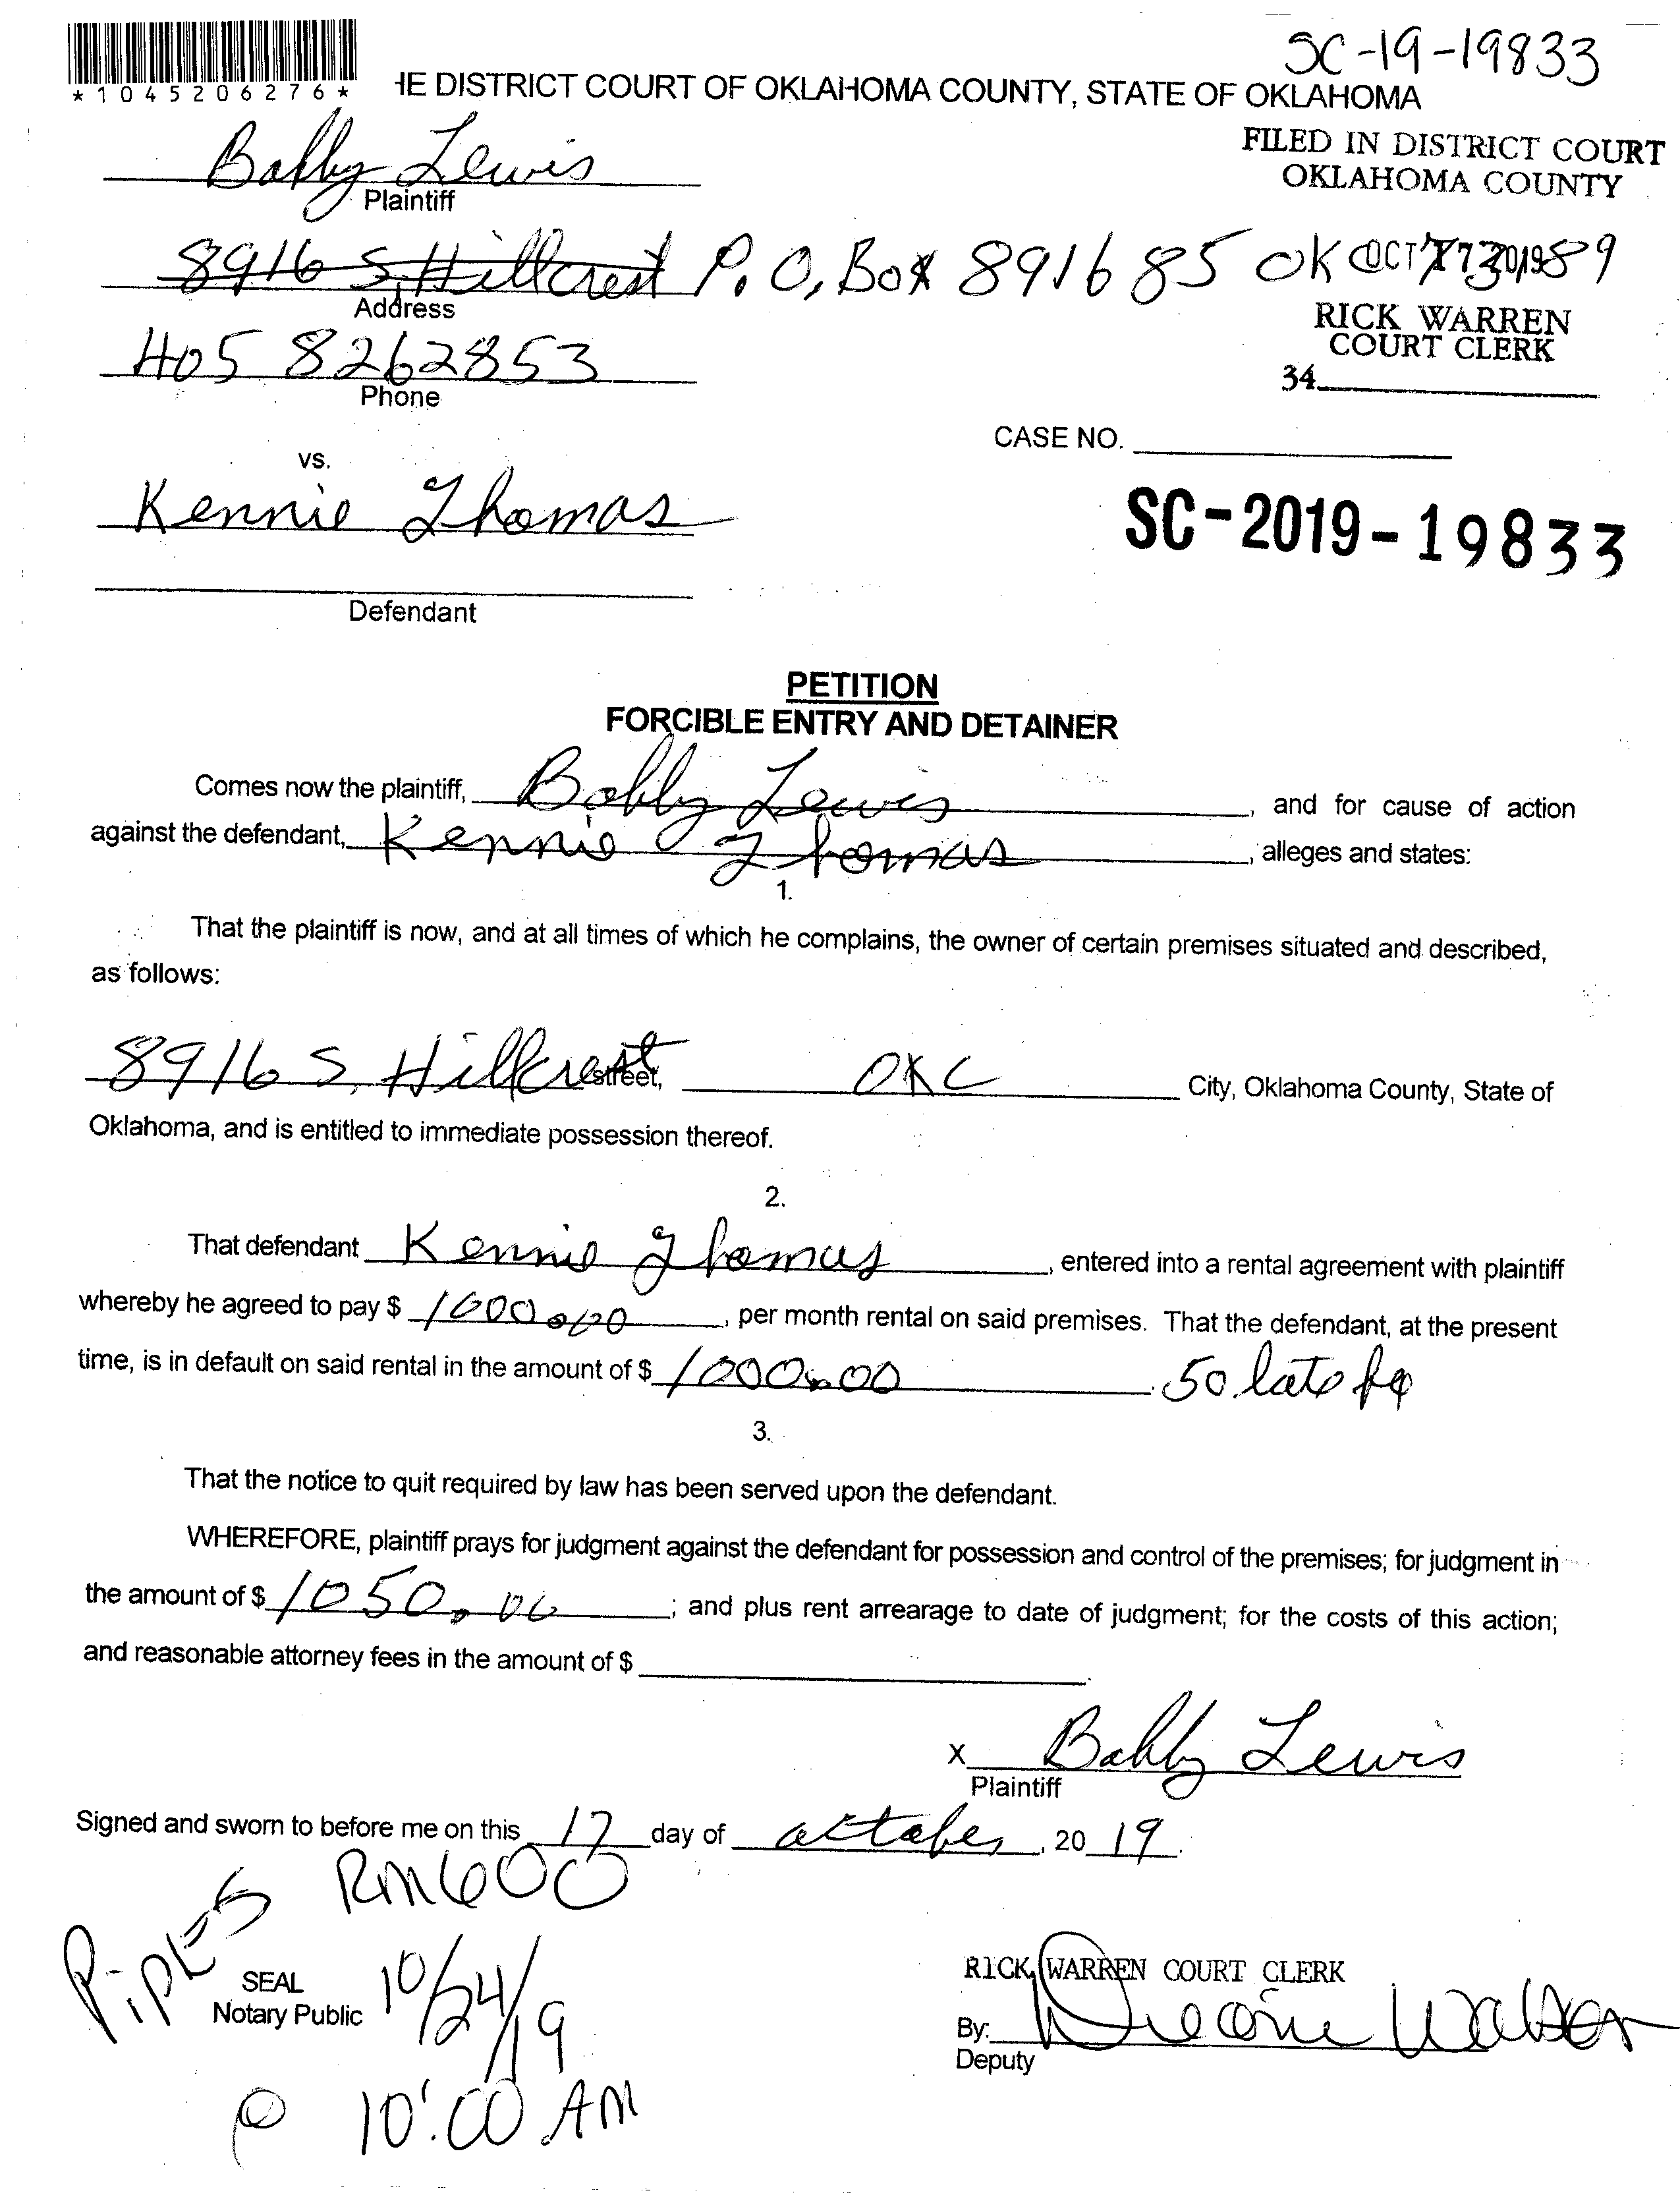 SC-19-19833
*1045206276*
HE DISTRICT COURT OF OKLAHOMA COUNTY, STATE OF OKLAHOMA
FILED IN DISTRICT COURT
OKLAHOMA COUNTY
Bobby Lewis
Plaintiff
8916 S, Hillcrest P.O, Box 891685 OK
OCT 17 2019
Address
RICK WARREN
COURT CLERK
405 8262853
Phone
34
CASE NO.
vs.
Kennie Thomas
SC-2019-19833
Defendant
PETITION
FORCIBLE ENTRY AND DETAINER
Comes now the plaintiff, Bobby Lewis, and for cause of action
against the defendant, Kennie Thomas, alleges and states:
1.
That the plaintiff is now, and at all times of which he complains, the owner of certain premises situated and described,
as follows:
8916 S, Hillcrest street, OKC City, Oklahoma County, State of
Oklahoma, and is entitled to immediate possession thereof.
2.
That defendant Kennie Thomas, entered into a rental agreement with plaintiff
whereby he agreed to pay $ 1000.00, per month rental on said premises. That the defendant, at the present
time, is in default on said rental in the amount of $ 1000.00. 50 late
3.
That the notice to quit required by law has been served upon the defendant.
WHEREFORE, plaintiff prays for judgment against the defendant for possession and control of the premises; for judgment in
the amount of $ 1050.00; and plus rent arrearage to date of judgment; for the costs of this action;
and reasonable attorney fees in the amount of $
x Bobby Lewis
Plaintiff
Signed and sworn to before me on this 17 day of october, 20 19.
RM600
PiPLES
SEAL
Notary Public
10/24/19
@ 10:00 AM
RICK WARREN COURT CLERK
By:
Deputy